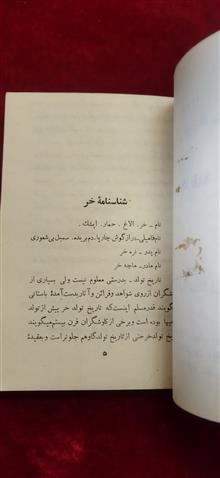 شناسنامهٔ خر
نام ـ خر. الاغ . حمار. ایشك .
نام‌فامیلی ـ درازگوش چارپا. دم‌بریده. سمبل بی‌شعوری
نام پدر ـ نره خر
نام مادر ـ ماچه خر
تاریخ تولد ـ بدرستی معلوم نیست ولی بسیاری از
شگران ازروی شواهد وقرائن وآثاربدست‌آمدهٔ باستانی
گویند قدرمسلم اینست‌که تاریخ تولد خر پیش ازتولد
بوده است وبرخی‌ازکاوشگران قرن بیستم‌میگویند
تولدخرحتی ازتاریخ تولدگاوهم جلوتراست وبعقیدهٔ
۵